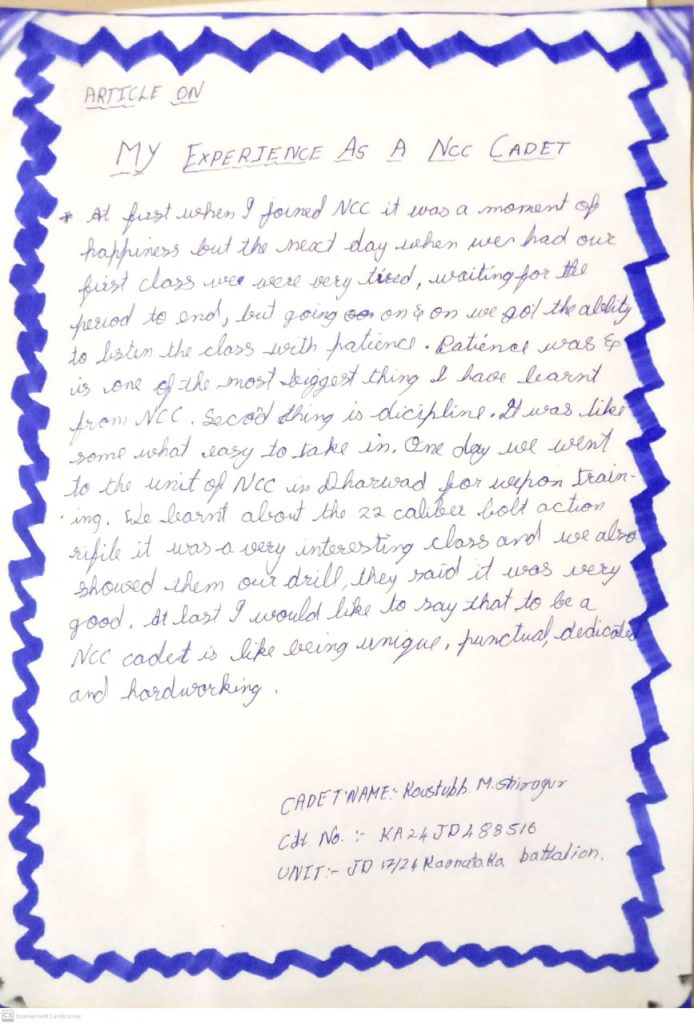 ARTICLE ON
MY EXPERIENCE AS A NCC CADET
* At first when I joined NCC it was a moment of
happiness but the next day when we had our
first class we were very tired, waiting for the
period to end, but going on & on we got the ability
to listen the class with patience. Patience was &
is one of the most biggest thing I have learnt
from NCC. Second thing is dicipline. It was like
some what easy to take in. One day we went
to the unit of NCC in Dharwad for wepon train-
ing. We learnt about the 22 caliber bolt action
rifile it was a very interesting class and we also
showed them our drill, they said it was very
good. At last I would like to say that to be a
NCC cadet is like being unique, punctual, dedicated
and hardworking.
CADET NAME:- Koustubh. M. Shirogur
Cdt No. :- KA24JD488516
UNIT:- JD 17/24 Karnataka battalion.
CS Scanned with CamScanner